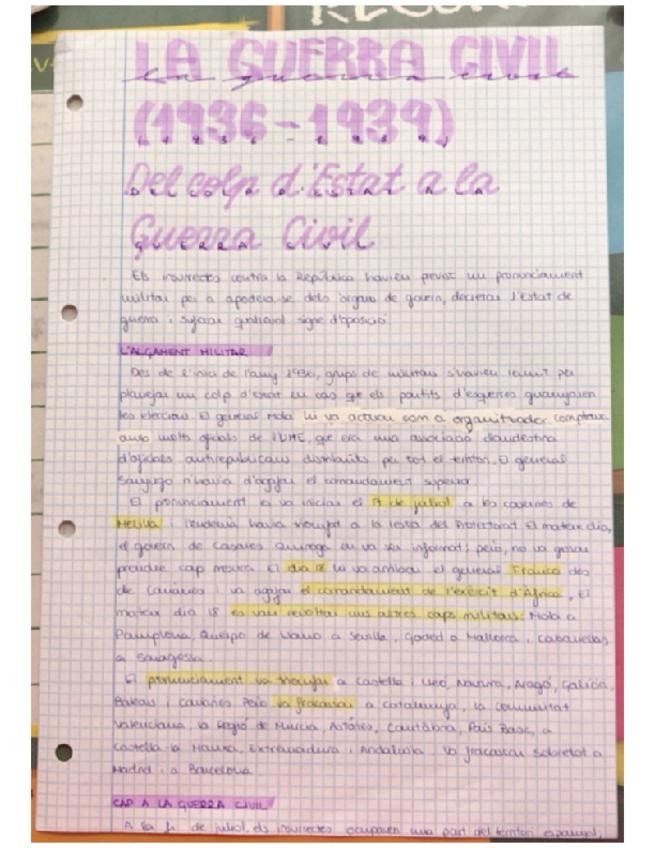 LA GUERRA CIVIL
(1936-1939)
Del colp d'Estat a la
Guerra Civil
Els insurrectes contra la República havien previst un pronunciament
militar per a apoderar-se dels òrgans de govern, decretar l'Estat de
guerra i signe d'oposició
L'ALÇAMENT MILITAR
Des de l'inici de l'any 1936, grups de militars s'havien reunit per
planejar un colp d'estat en cas que els partits d'esquerres guanyaren
les eleccions. El general Mola hi va actuar com a organitzador
amb molts oficials de l'UME, que era una associació clandestina
d'oficials antirepublicans distribuïts per tot el territori. El general
Sanjurjo n'havia d'agafar el comandament superior.
El pronunciament es va iniciar el 17 de juliol a les casernes de
Melilla i l'endemà havia triomfat a la resta del Protectorat. El mateix dia,
el govern de Casares Quiroga en va ser informat; però, no va gosar
prendre cap mesura. El dia 18 hi va arribar el general Franco des
de Canàries i va agafar el comandament de l'exèrcit d'Àfrica. El
mateix dia 18 es van revoltar uns altres caps militars: Mola a
Pamplona, Queipo de Llano a Sevilla, Goded a Mallorca i Cabanellas
a Saragossa.
El pronunciament va triomfar a Castella i Lleó, Navarra, Aragó, Galícia,
Balears i Canàries. Però va fracassar a Catalunya, la Comunitat
Valenciana, la Regió de Múrcia, Astúries, Cantàbria, País Basc, a
Castella-la Manxa, Extremadura i Andalusia. Va fracassar sobretot a
Madrid i a Barcelona.
CAP A LA GUERRA CIVIL
A la fi de juliol, els insurrectes ocupaven una part del territori espanyol,